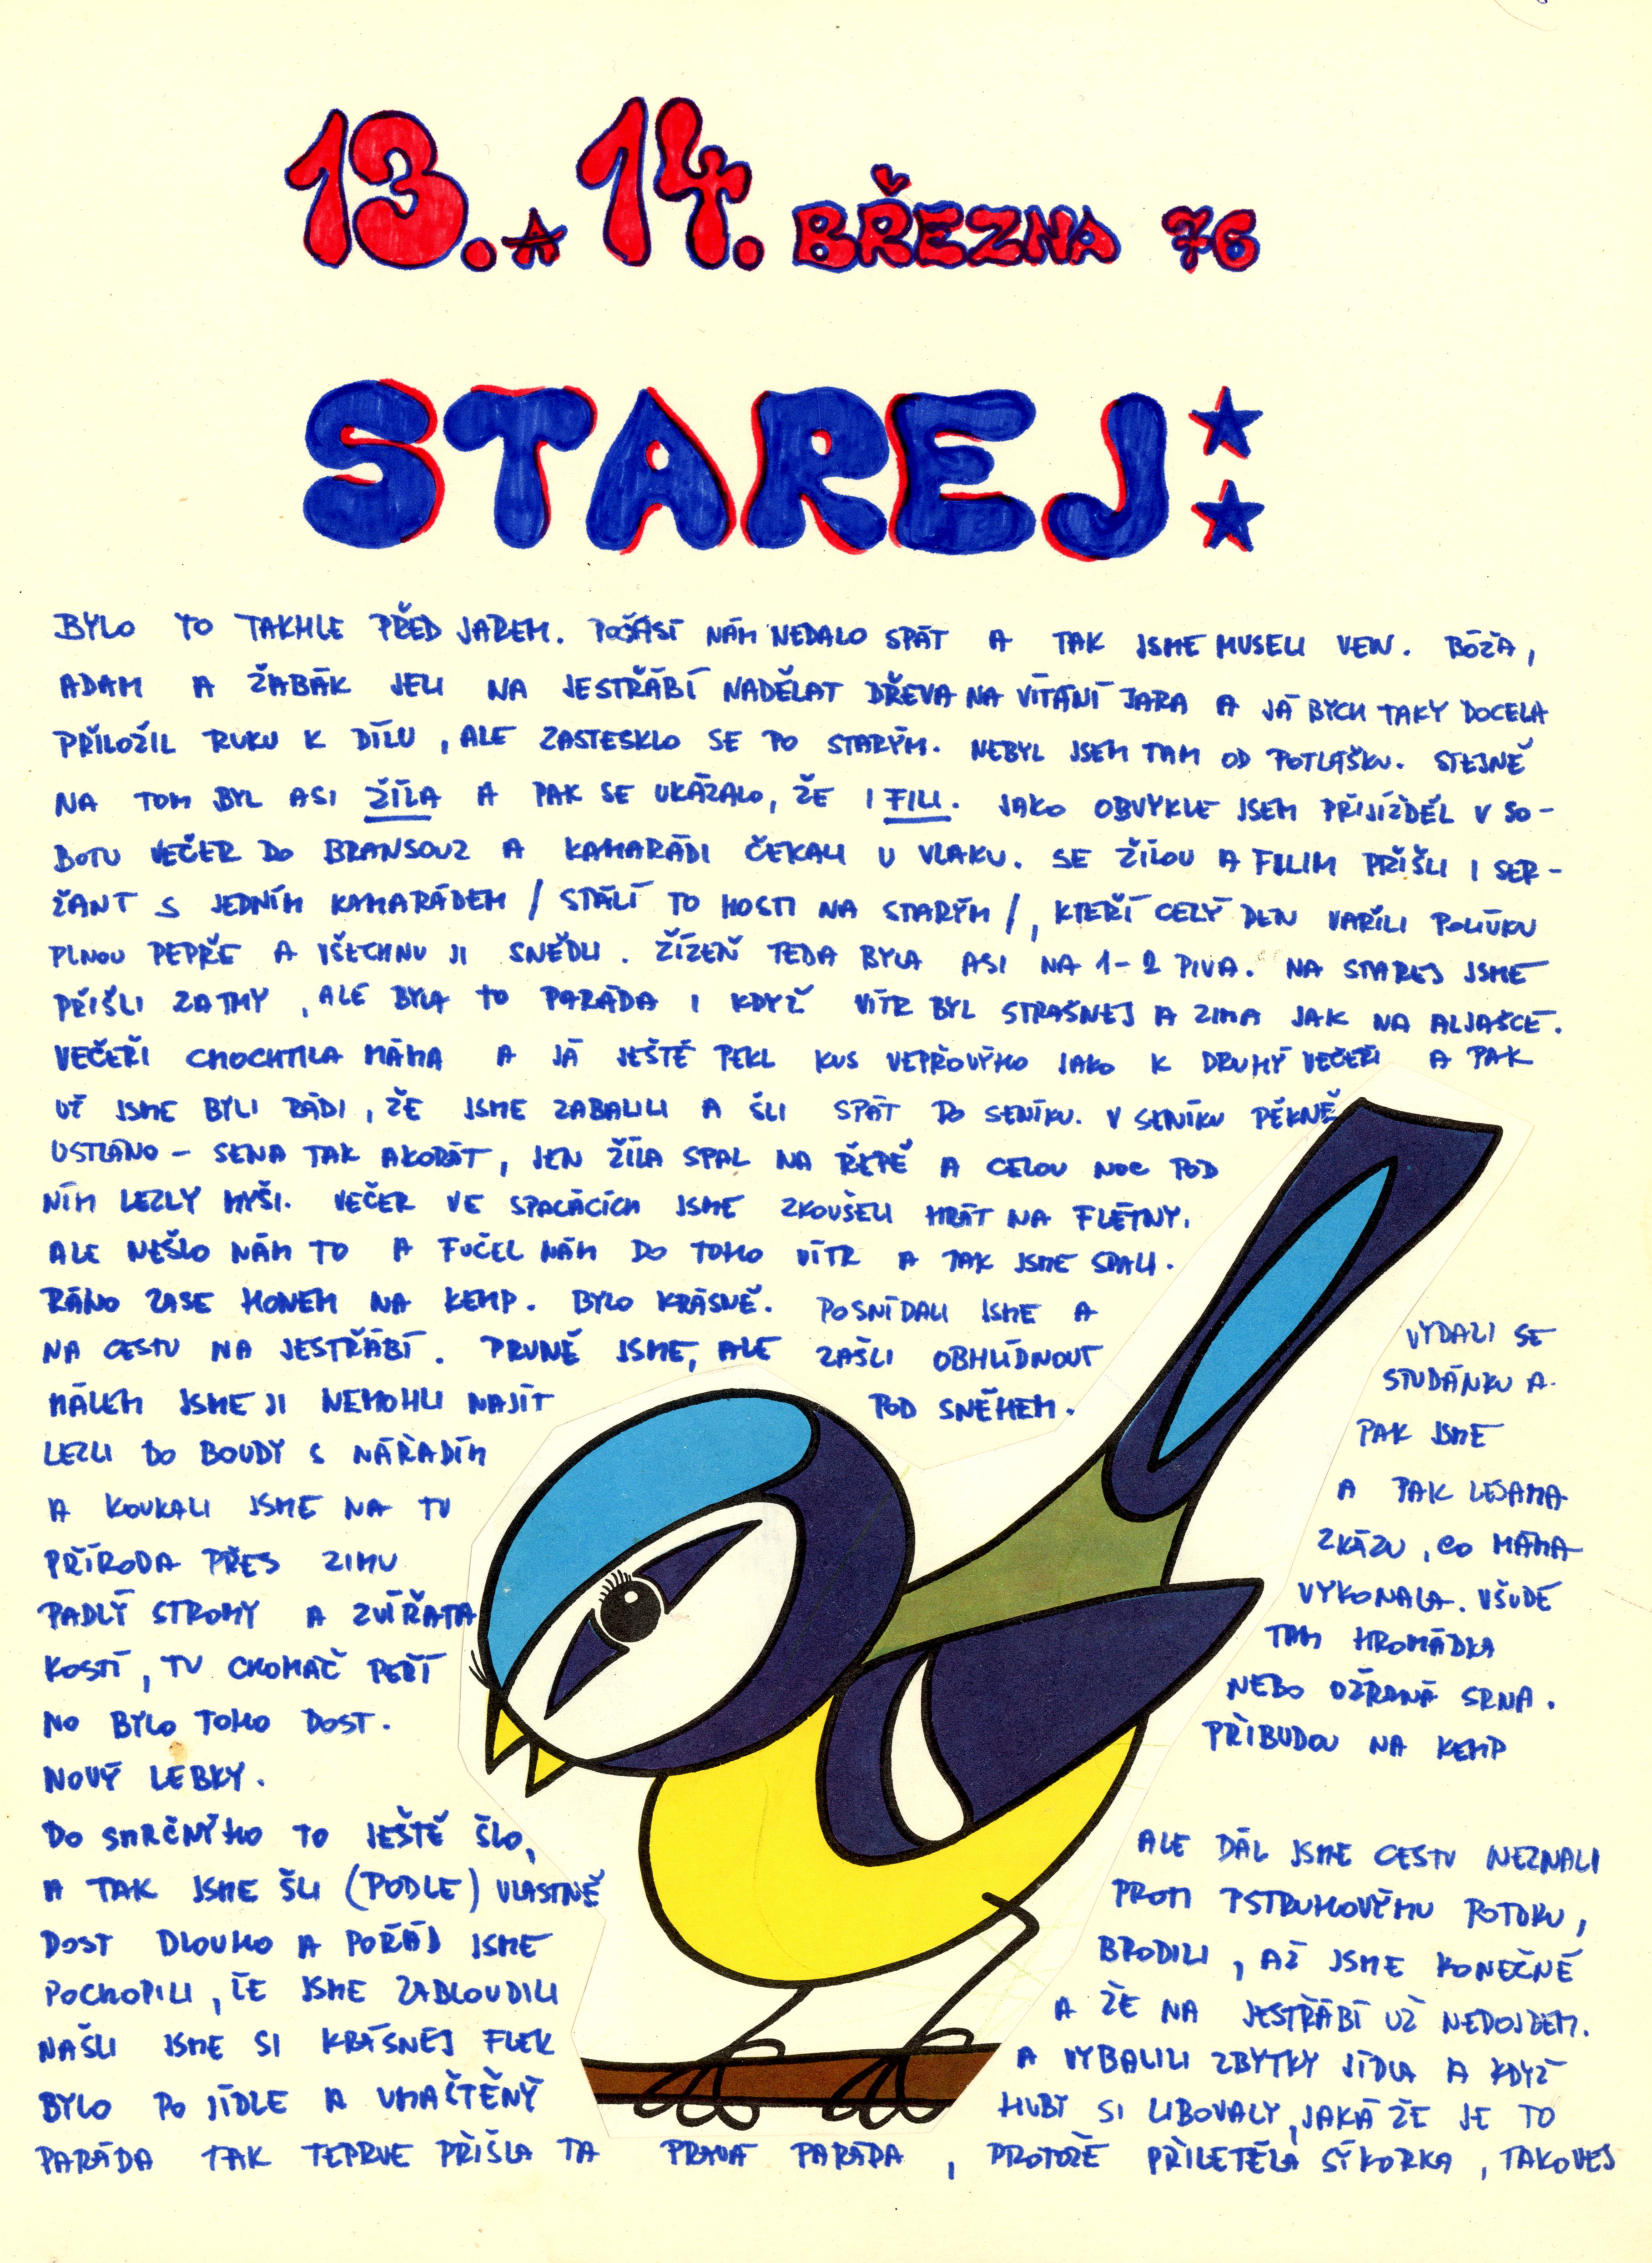 13. A 14. BŘEZNA 76
STAREJ:
BYLO TO TAKHLE PŘED JAREM. POČASÍ NÁM NEDALO SPÁT A TAK JSME MUSELI VEN. BÓŽA,
ADAM A ŽABÁK JELI NA JESTŘÁBÍ NADĚLAT DŘEVA NA VÍTÁNÍ JARA A JÁ BYCH TAKY DOCELA
PŘILOŽIL RUKU K DÍLU, ALE ZASTESKLO SE PO STARÝM. NEBYL JSEM TAM OD POTLAŠKU. STEJNĚ
NA TOM BYL ASI ŽÍLA A PAK SE UKÁZALO, ŽE I FILI. JAKO OBVYKLE JSEM PŘIJÍŽDĚL V SO-
BOTU VEČER DO BRANSOUZ A KAMARÁDI ČEKALI U VLAKU. SE ŽÍLOU A FILIM PŘIŠLI I SER-
ŽANT S JEDNÍM KAMARÁDEM / STÁLÍ TO HOSTI NA STARÝM /, KTEŘÍ CELÝ DEN VAŘILI POLÍVKU
PLNOU PEPŘE A VŠECHNU JI SNĚDLI. ŽÍZEŇ TEDA BYLA ASI NA 1-2 PIVA. NA STAREJ JSME
PŘIŠLI ZATMY, ALE BYLA TO PARÁDA I KDYŽ VÍTR BYL STRAŠNEJ A ZIMA JAK NA ALJAŠCE.
VEČEŘI CHOCHTILA MÁMA A JÁ JEŠTĚ PEKL KUS VEPŘOVÝHO JAKO K DRUHÝ VEČEŘI A PAK
UŽ JSME BYLI RÁDI, ŽE JSME ZABALILI A ŠLI SPÁT DO SENÍKU. V SENÍKU PĚKNĚ
USTLÁNO - SENA TAK AKORÁT, JEN ŽÍLA SPAL NA ŘEPĚ A CELOU NOC POD
NÍM LEZLY MYŠI. VEČER VE SPACÁCÍCH JSME ZKOUŠELI HRÁT NA FLÉTNY.
ALE NEŠLO NÁM TO A FUČEL NÁM DO TOHO VÍTR A TAK JSME SPALI.
RÁNO ZASE HONEM NA KEMP. BYLO KRÁSNĚ. POSNÍDALI JSME A VYDALI SE
NA CESTU NA JESTŘÁBÍ. PRVNĚ JSME, ALE ZAŠLI OBHLÍDNOUT STUDÁNKU A
MÁLEM JSME JI NEMOHLI NAJÍT POD SNĚHEM. PAK JSME
LEZLI DO BOUDY S NÁŘADÍM A PAK LESAMA
A KOUKALI JSME NA TU ZKÁZU, CO MÁMA
PŘÍRODA PŘES ZIMU VYKONALA. VŠUDE
PADLÝ STROMY A ZVÍŘATA TAM HROMÁDKA
KOSTÍ, TU CHOMÁČ PEŘÍ NEBO OŽRANÁ SRNA.
NO BYLO TOHO DOST. PŘIBUDOU NA KEMP
NOVÝ LEBKY.
DO SMRČNÝHO TO JEŠTĚ ŠLO, ALE DÁL JSME CESTU NEZNALI
A TAK JSME ŠLI (PODLE) VLASTNĚ PROTI PSTRUHOVÝMU POTOKU,
DOST DLOUHO A POŘÁD JSME BRODILI, AŽ JSME KONEČNĚ
POCHOPILI, ŽE JSME ZABLOUDILI A ŽE NA JESTŘÁBÍ UŽ NEDOJDEM.
NAŠLI JSME SI KRÁSNEJ FLEK A VYBALILI ZBYTKY JÍDLA A KDYŽ
BYLO PO JÍDLE A UMAŠTĚNÝ HUBY SI LIBOVALY, JAKÁ ŽE JE TO
PARÁDA TAK TEPRVE PŘIŠLA TA PRAVÁ PARÁDA, PROTOŽE PŘILETĚLA SÝKORKA, TAKOVEJ